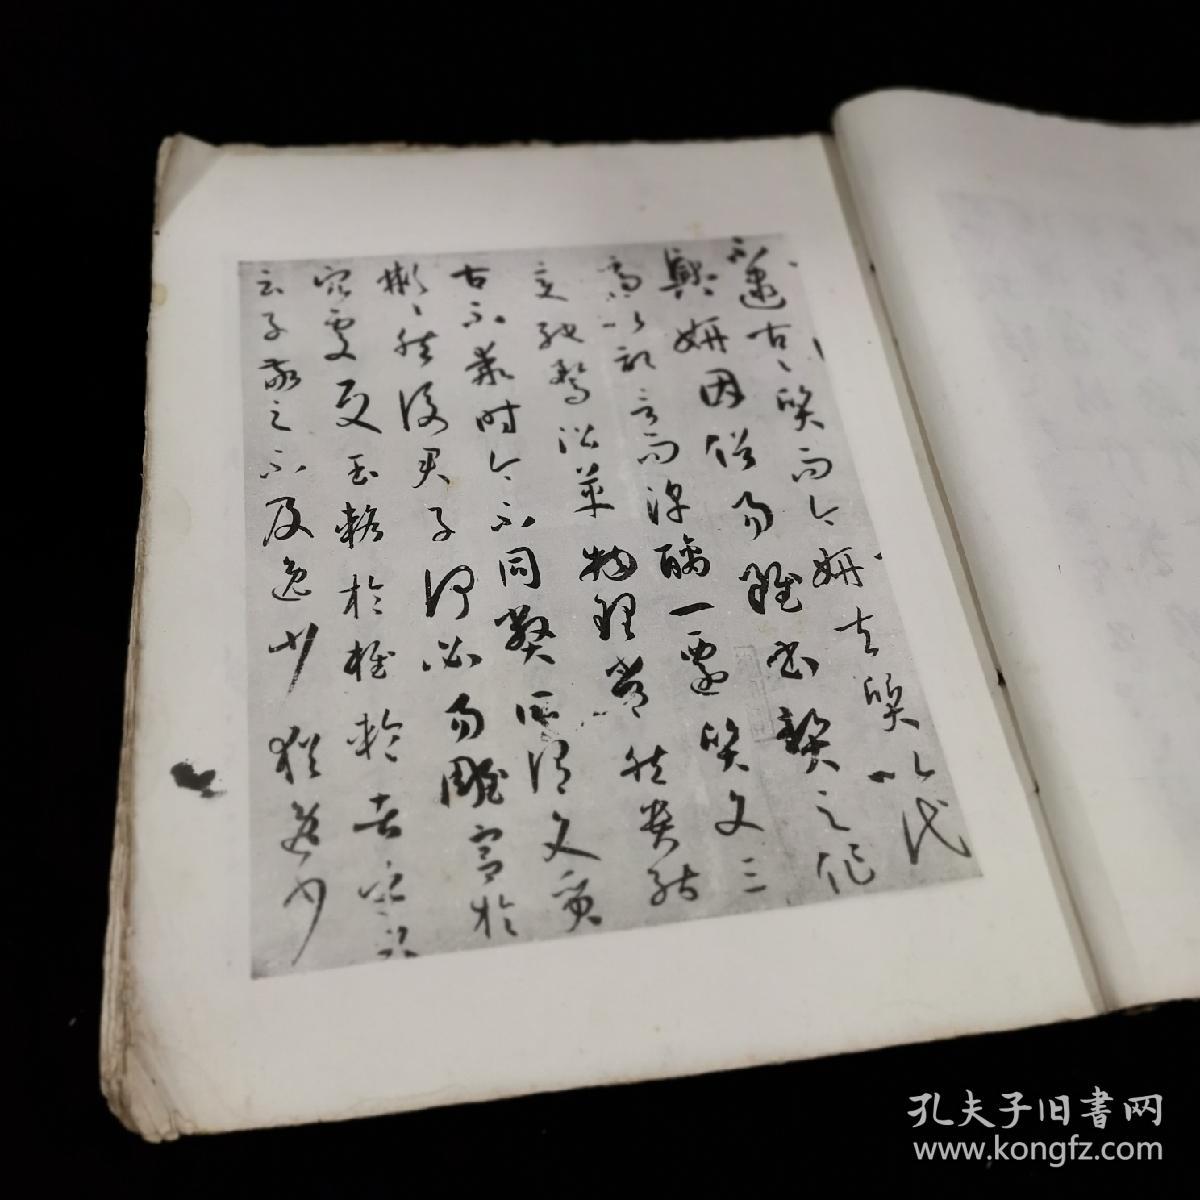 不逮古〻質而今妍夫質以代
興妍因俗易雖書契之作
適以記言而淳醨一遷質文三
變馳騖沿革物理常然貴能
古不乖時今不同弊所謂文質
彬〻然後君子何必易雕宮於
穴處反玉輅於椎輪者乎又
云子敬之不及逸少猶逸少
孔夫子旧書网
www.kongfz.com